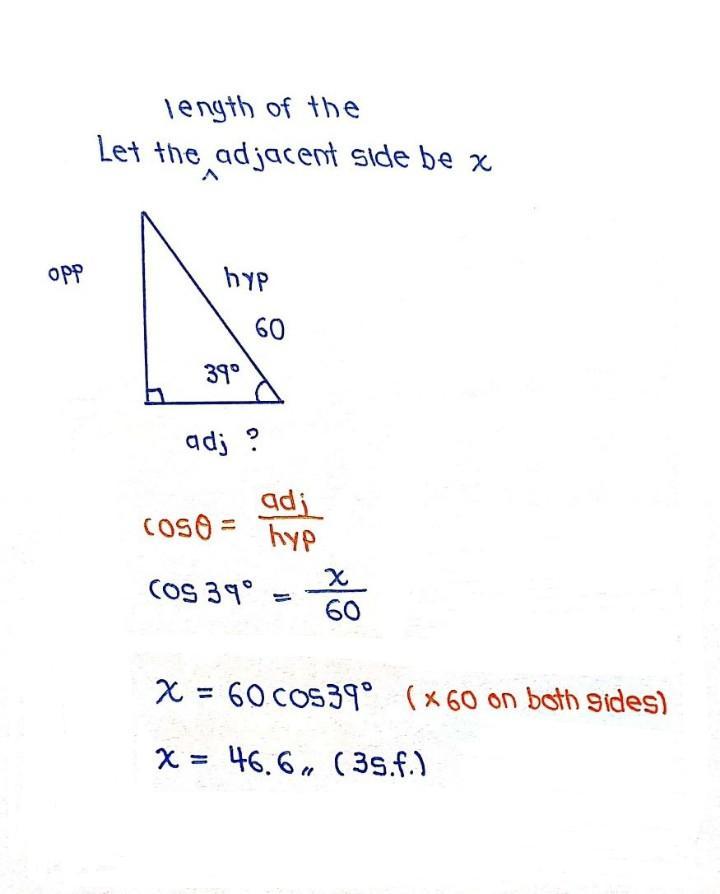 length of the
Let the ^ adjacent side be x
opp
hyp
60
39°
adj ?
cosθ = adj/hyp
cos 39° = x/60
x = 60 cos39° (×60 on both sides)
x = 46.6,, (3s.f.)